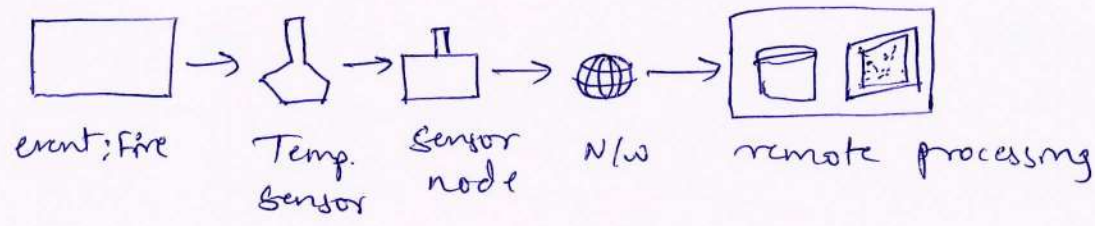 event; Fire
Temp.
sensor
sensor
node
N/w
remote processing